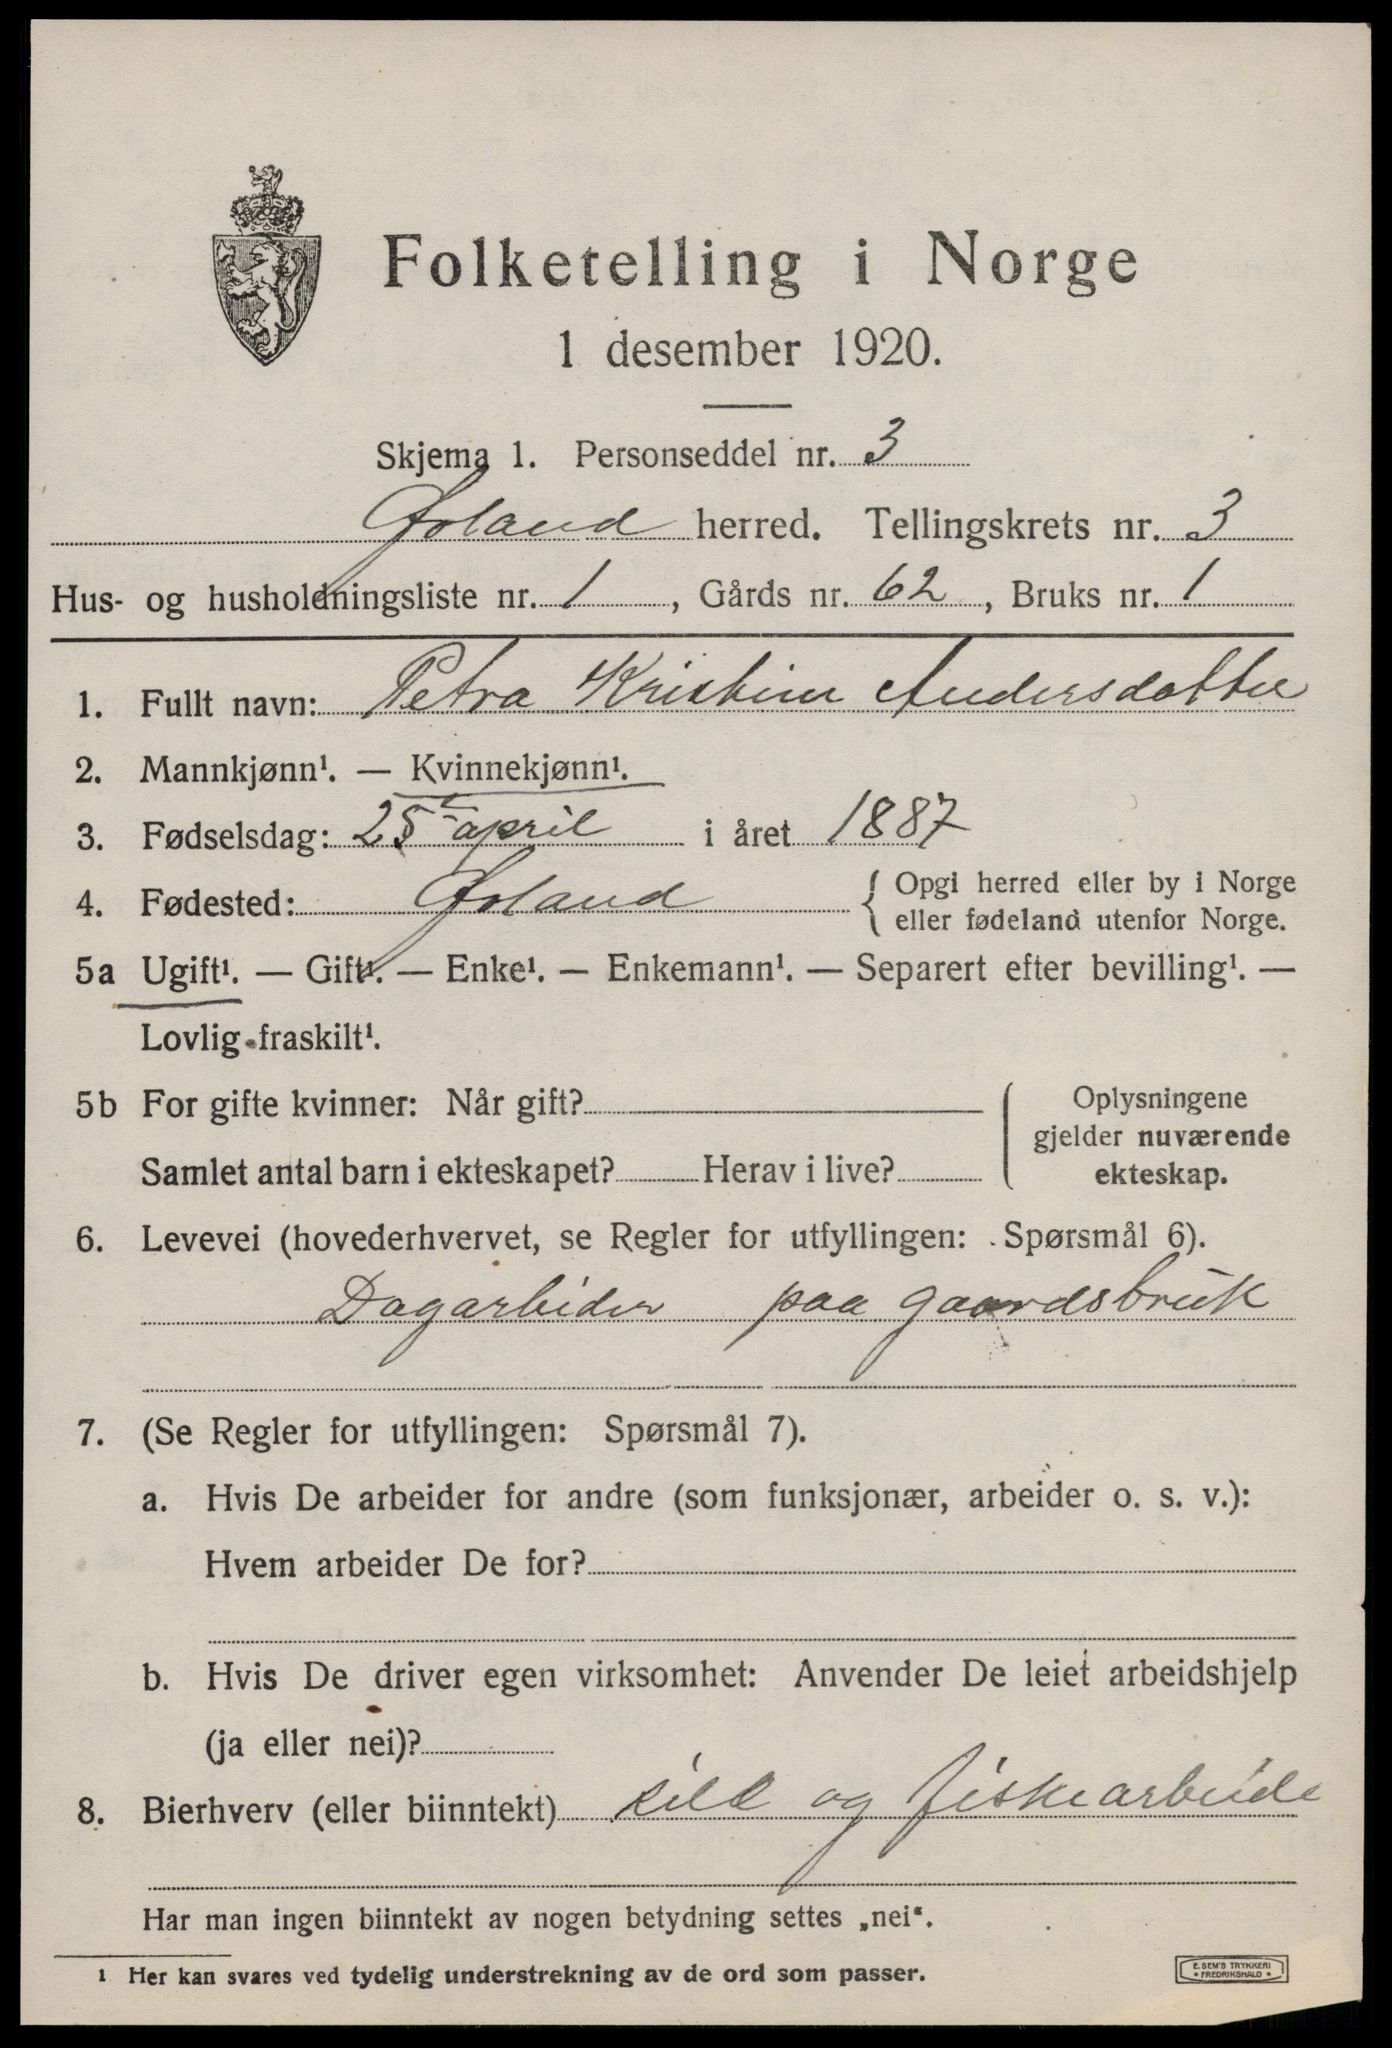 Folketelling i Norge
1 desember 1920.
Skjema 1. Personseddel nr. 3
Ørland herred. Tellingskrets nr. 3
Hus- og husholdningsliste nr. 1, Gårds nr. 62, Bruks nr. 1
1. Fullt navn: Petra Kristine Andersdatter
2. Mannkjønn¹. — Kvinnekjønn¹.
3. Fødselsdag: 25 april i året 1887
4. Fødested: Ørland { Opgi herred eller by i Norge
eller fødeland utenfor Norge.
5a Ugift¹. — Gift¹. — Enke¹. — Enkemann¹. — Separert efter bevilling¹. —
Lovlig fraskilt¹.
5b For gifte kvinner: Når gift?
Samlet antal barn i ekteskapet? Herav i live?
Oplysningene
gjelder nuværende
ekteskap.
6. Levevei (hovederhvervet, se Regler for utfyllingen: Spørsmål 6).
Dagarbeider paa gaardsbruk
7. (Se Regler for utfyllingen: Spørsmål 7).
a. Hvis De arbeider for andre (som funksjonær, arbeider o. s. v.):
Hvem arbeider De for?
b. Hvis De driver egen virksomhet: Anvender De leiet arbeidshjelp
(ja eller nei)?
8. Bierhverv (eller biinntekt) sild og fiskearbeide
Har man ingen biinntekt av nogen betydning settes „nei“.
¹ Her kan svares ved tydelig understrekning av de ord som passer.
E. SEM'S TRYKKERI
• FREDRIKSHALD •